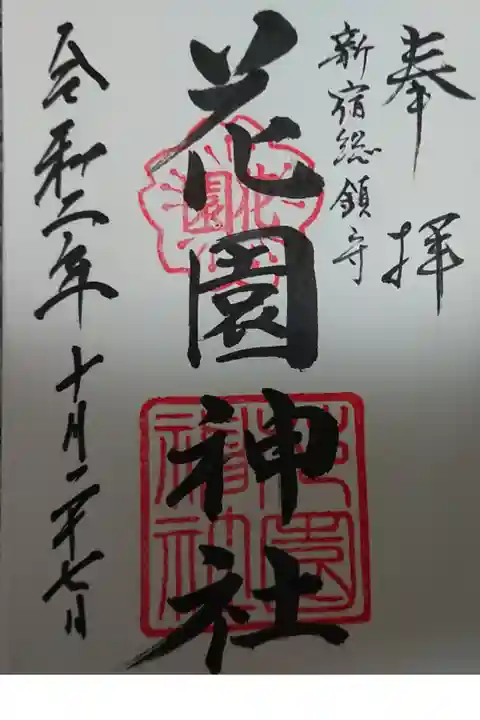 奉拝
新宿総鎮守
花園神社
花園
花園神社
令和二年十月二十七日